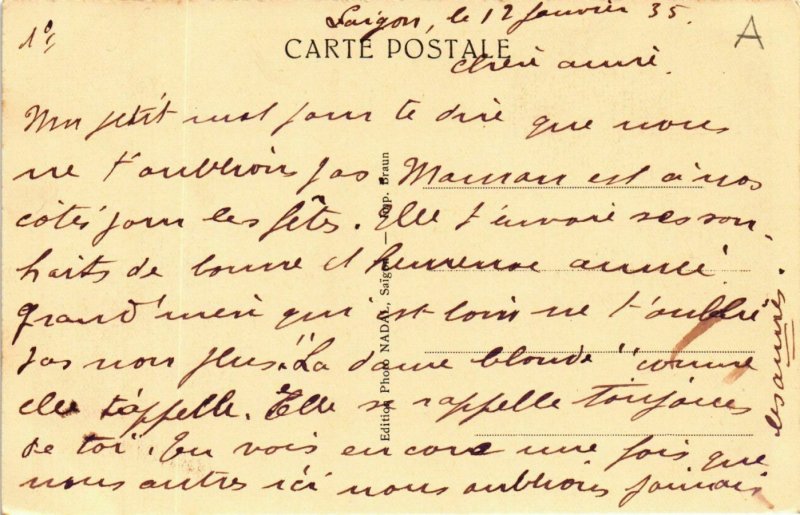 Saigon, le 12 Janvier 35.
1°/
A
CARTE POSTALE
Chère amie.
Un petit mot pour te dire que nous
ne t'oublions pas. Maman est à nos
côtés pour les fêtes. Elle t'envoie ses sou-
haits de bonne et heureuse année
grand'mère qui est loin ne t'oublie
pas non plus "La dame blonde" comme
elle t'appelle. Elle se rappelle toujours
de toi. Tu vois encore une fois que
nous autres ici nous oublions jamais
les amies.
Edition Photo NADAL, Saigon — Imp. Braun